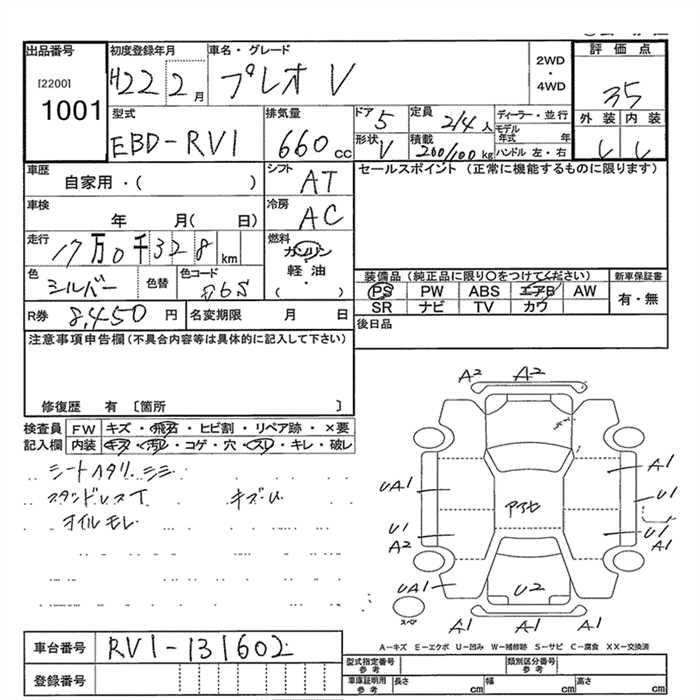 出品番号
[2200]
1001
初度登録年月
H22 2月
車名・グレード
プレオ V
2WD
・
4WD
評価点
3.5
外装 内装
型式
EBD-RV1
排気量
660cc
ドア 5
形状 V
定員 2/4人
積載 200/100kg
ディーラー・並行
モデル年式 年
ハンドル 左・右
車歴
自家用・( )
シフト
AT
セールスポイント (正常に機能するものに限ります)
車検
年 月( 日)
冷房
AC
走行
17万0千328km
燃料
ガソリン
・
軽油
・
( )
色
シルバー
色替
色コード
装備品 (純正品に限り○をつけてください)
PS PW ABS エアB AW
SR ナビ TV カワ
新車保証書
有・無
R券 8,450円
名変期限 月 日
後日品
注意事項申告欄(不具合内容等は具体的に記入して下さい)
修復歴 有 [箇所 ]
検査員 FW キズ・飛石・ヒビ割・リペア跡・×要
記入欄 内装 キズ・汚れ・コゲ・穴・スレ・キレ・破レ
シートヘタリ シミ
キズU
オイルモレ
A2
A2
A1
UA1
U1
U1
A2
U1
A1
UA1
U2
スペア
A1
A1
A1
A-キズ E-エクボ U-凹み W-補修跡 S-サビ C-腐食 XX-交換済
車台番号 RV1-131602
登録番号
型式指定番号 参考
類別区分番号 参考
車庫証明用 参考
長さ cm 幅 cm 高さ cm